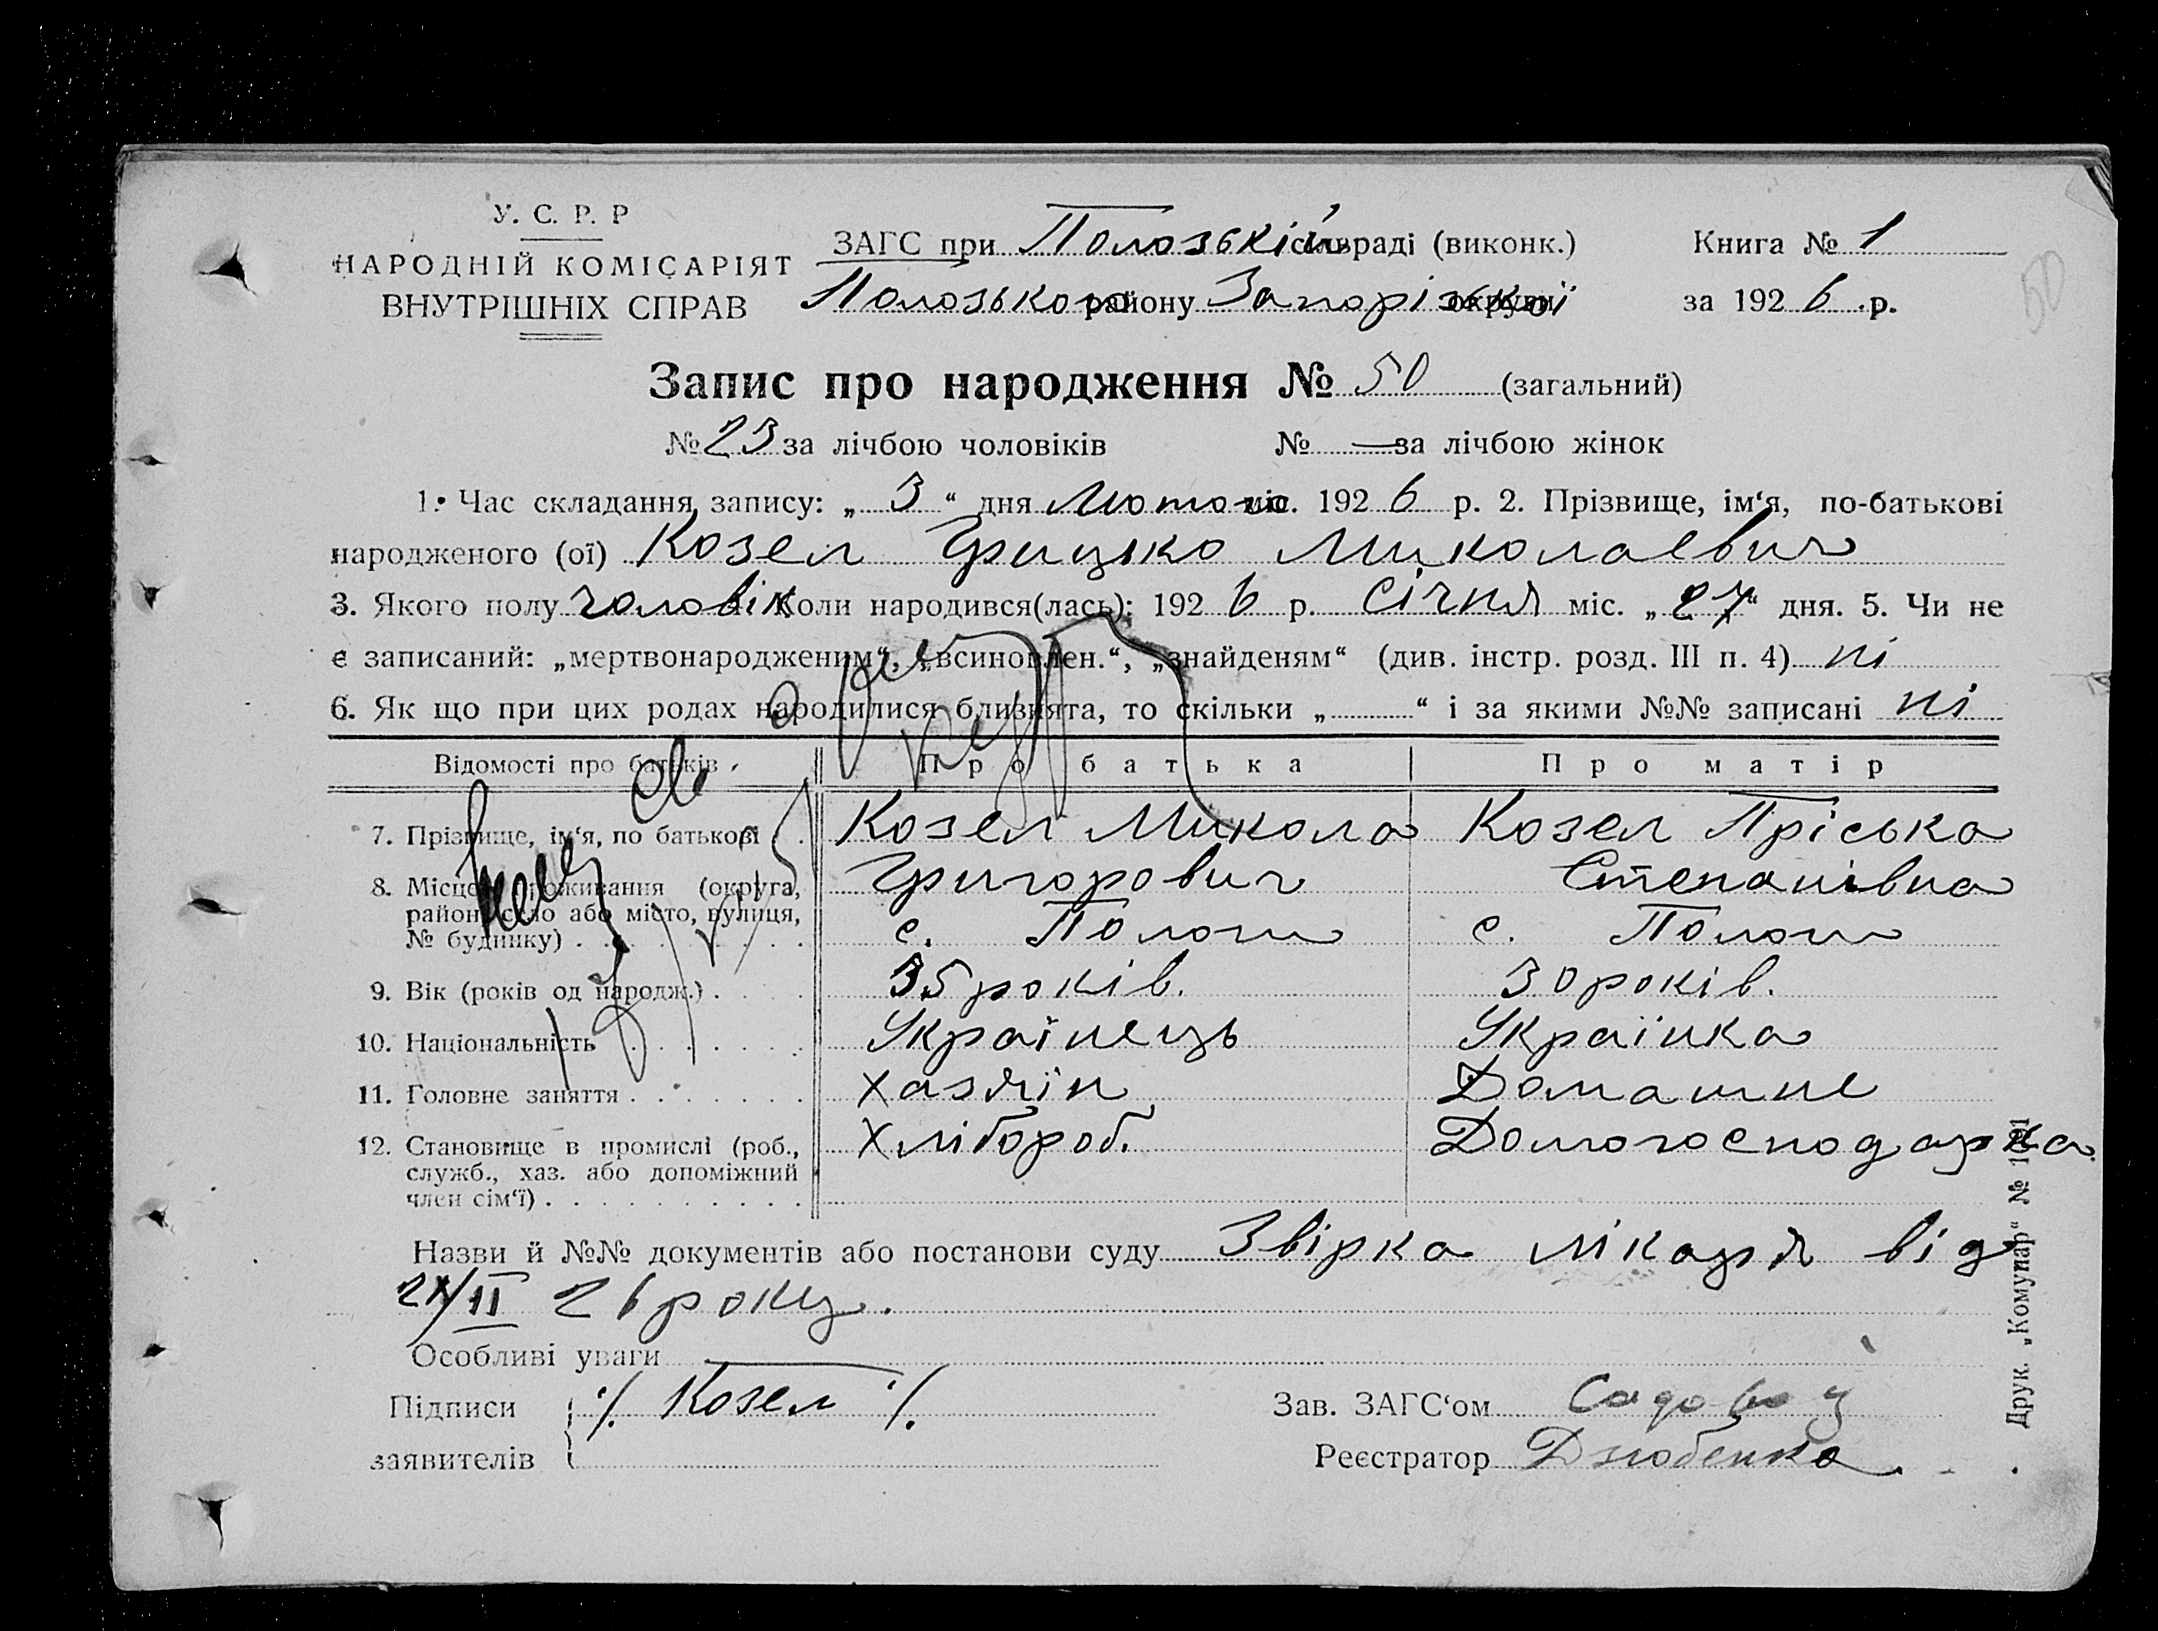 У. С. Р. Р
НАРОДНІЙ КОМІСАРІЯТ
ВНУТРІШНІХ СПРАВ
ЗАГС при Полозькій сільраді (виконк.)
Полозького району Запорізької округи
Книга № 1
за 1926 р.
50
Запис про народження № 50 (загальний)
№ 23 за лічбою чоловіків № — за лічбою жінок
1. Час складання запису: „ 3 “ дня Лютого міс. 1926 р. 2. Прізвище, ім‘я, по-батькові
народженого (ої) Козел Грицько Миколаевич
3. Якого полу чоловік Коли народився(лась): 1926 р. Січня міс. „ 27 “ дня. 5. Чи не
є записаний: „мертвонародженим“, „всиновлен.“, „знайденям“ (див. інстр. розд. III п. 4) ні
6. Як що при цих родах народилися близнята, то скільки „ “ і за якими №№ записані ні
Відомості про батьків Про батька Про матір
7. Прізвище, ім‘я, по батькові Козел Микола Козел Пріська
Григорович Степанівна
8. Місце проживання (округа,
район, село або місто, вулиця,
№ будинку) с. Пологи с. Пологи
9. Вік (років од народж.) 35 років. 30 років.
10. Національність Українець Українка
11. Головне заняття Хазяїн Домашне
12. Становище в промислі (роб., Хлібороб. Домогосподарка
служб., хаз. або допоміжний
член сім‘ї)
Назви й №№ документів або постанови суду Звірка лікаря від
/II 26 року.
Особливі уваги —
Підписи ./. Козел ./.
заявителів
Зав. ЗАГС‘ом Садовой
Реєстратор Дзюбенко
Друк. „Комунар“ №